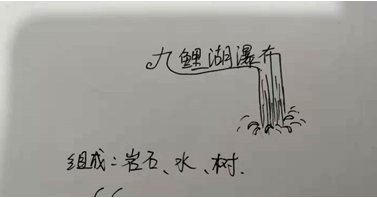 九鲤湖瀑布
组成：岩石、水、树.